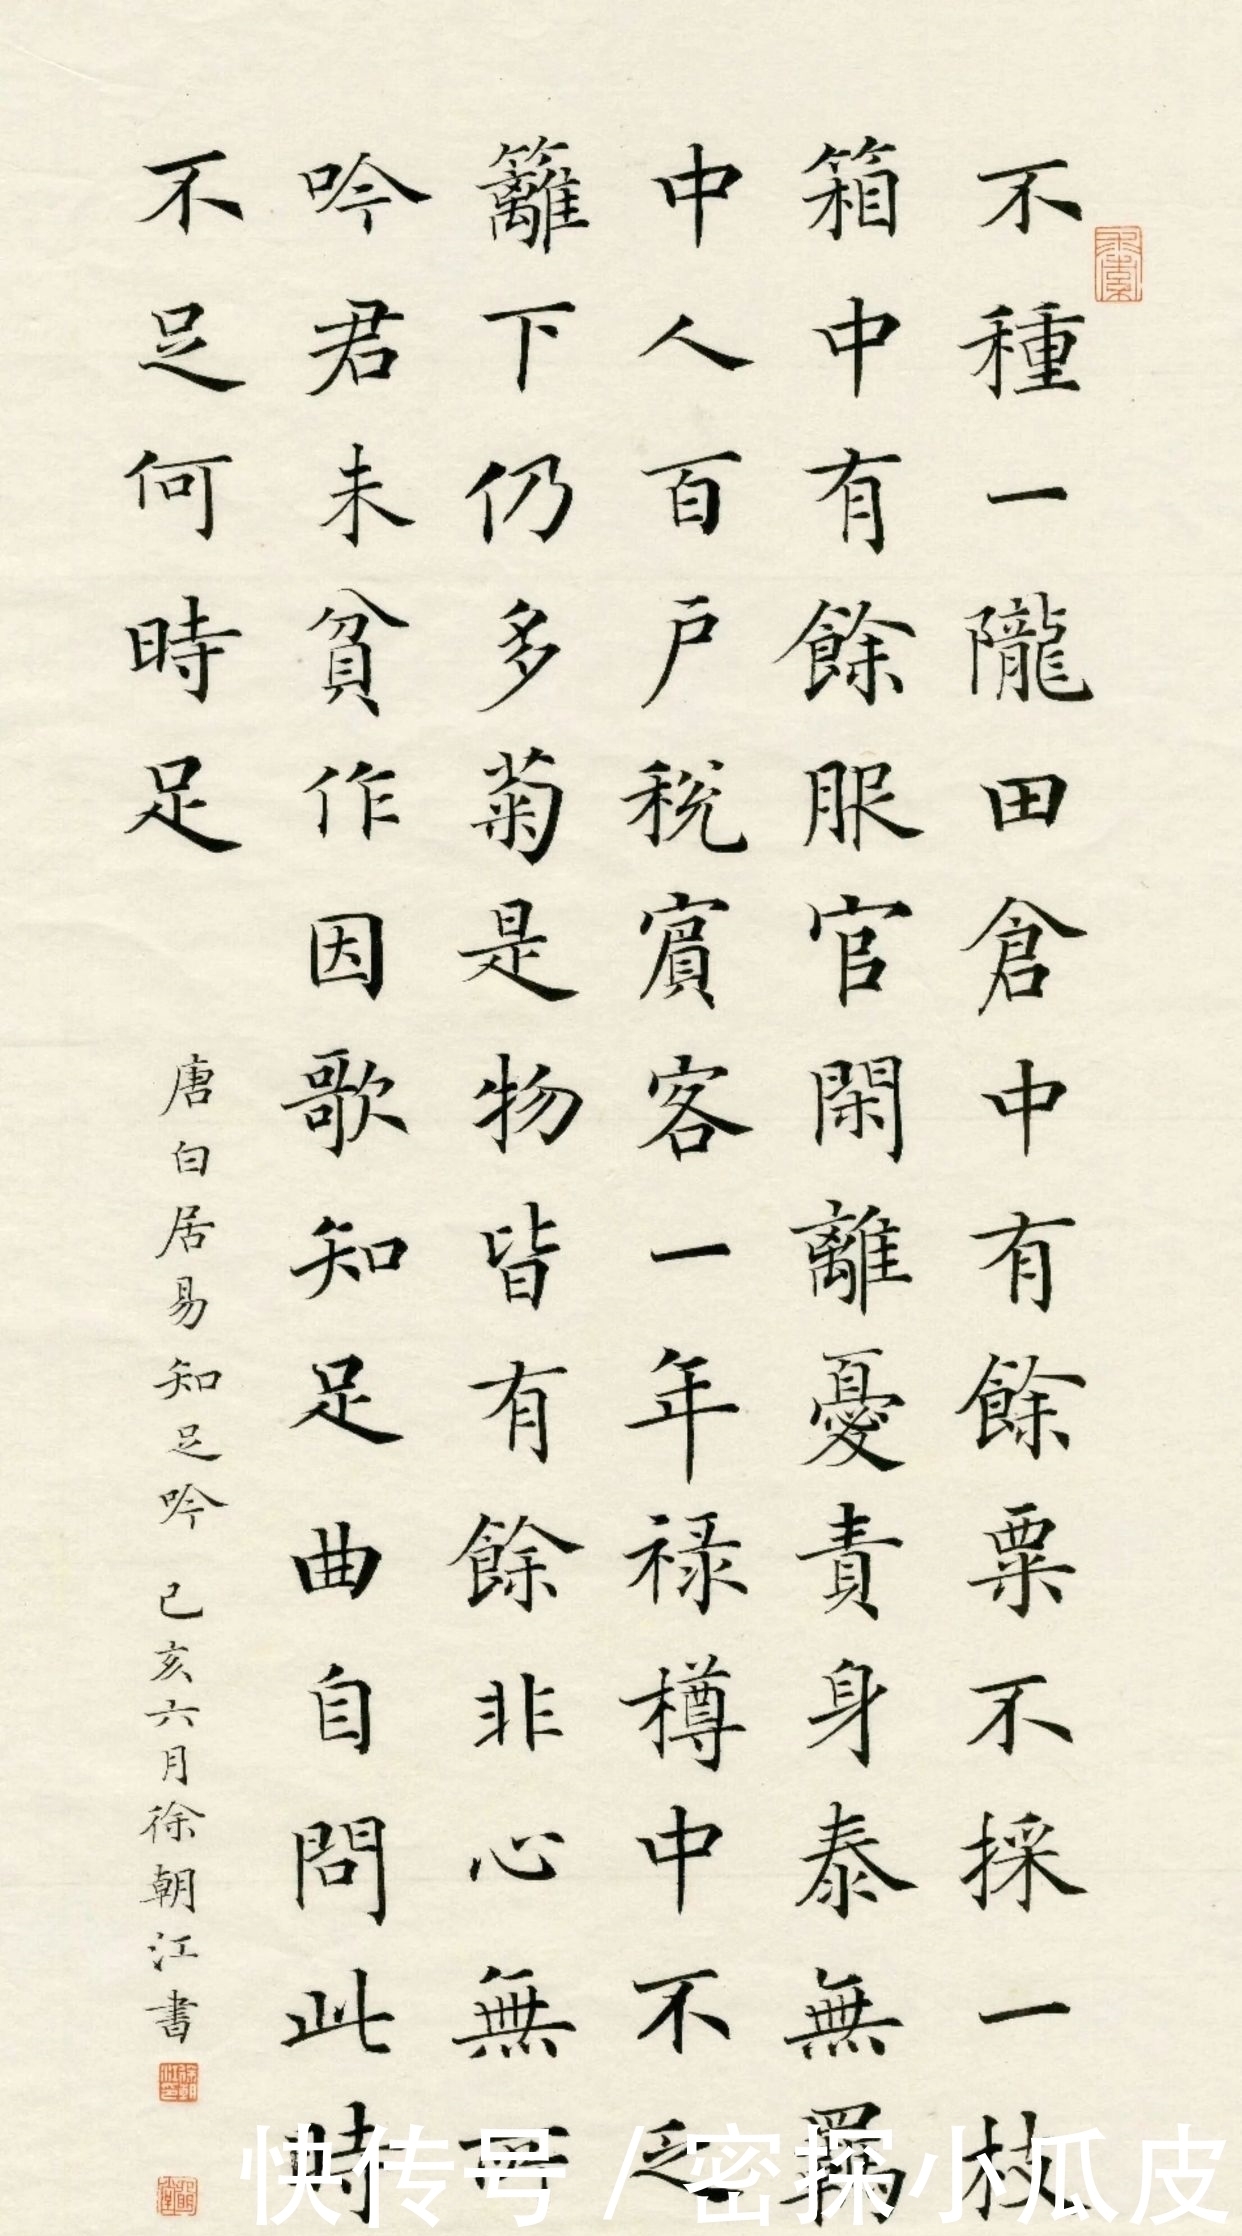 不種一隴田倉中有餘粟不採一枝
箱中有餘服官閑離憂責身泰無羈
中人百户税賓客一年禄樽中不乏
籬下仍多菊是物皆有餘非心無所
吟君未貧作因歌知足曲自問此時
不足何時足
唐白居易知足吟 己亥六月徐朝江書
快传号/密探小瓜皮